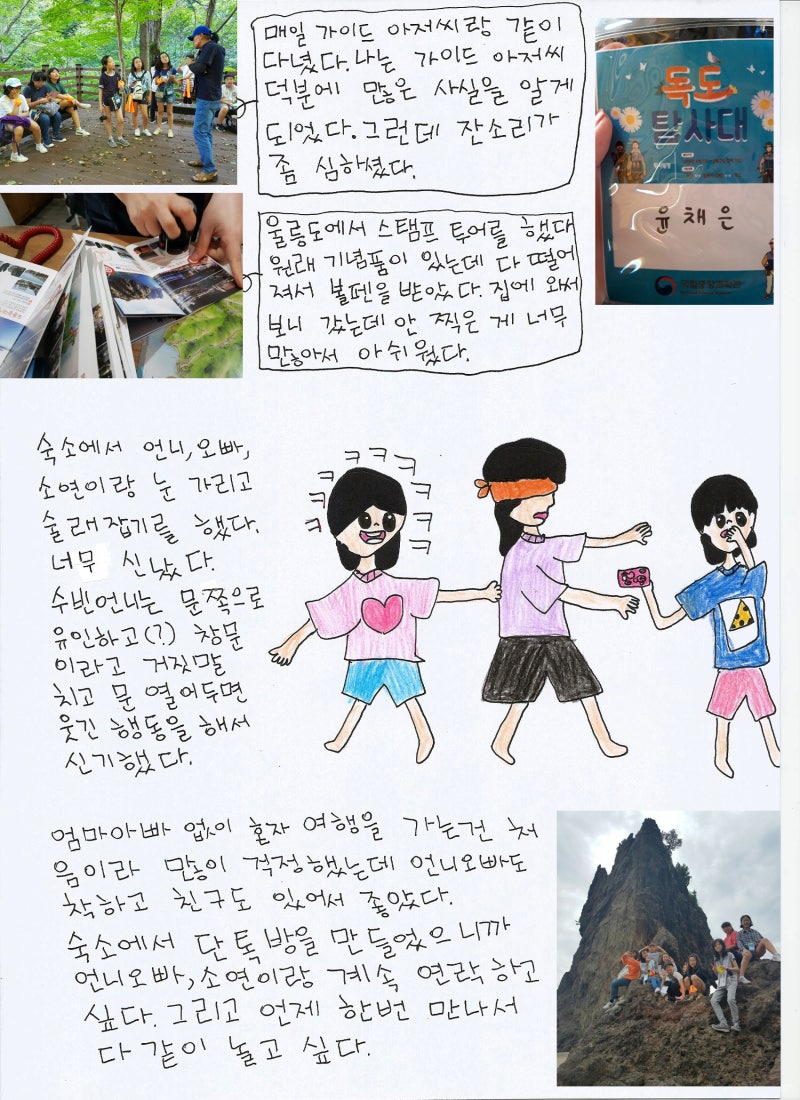 매일 가이드 아저씨랑 같이
다녔다. 나는 가이드 아저씨
덕분에 많은 사실을 알게
되었다. 그런데 잔소리가
좀 심하셨다.
독도
탐사대
윤채은
울릉도에서 스탬프 투어를 했다
원래 기념품이 있는데 다 떨어
져서 볼펜을 받았다. 집에 와서
보니 갔는데 안 찍은 게 너무
많아서 아쉬웠다.
숙소에서 언니, 오빠,
소연이랑 눈 가리고
술래잡기를 했다.
너무 신났다.
수빈언니는 문쪽으로
유인하고(?) 창문
이라고 거짓말
치고 문 열어두면
웃긴 행동을 해서
신기했다.
ㅋㅋㅋㅋㅋㅋㅋㅋㅋ
엄마아빠 없이 혼자 여행을 가는건 처
음이라 많이 걱정했는데 언니오빠도
착하고 친구도 있어서 좋았다.
숙소에서 단톡방을 만들었으니까
언니오빠, 소연이랑 계속 연락하고
싶다. 그리고 언제 한번 만나서
다같이 놀고 싶다.